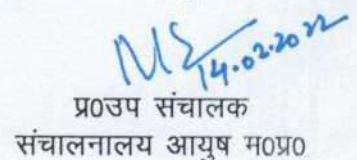 14.02.2022
प्र0उप संचालक
संचालनालय आयुष म0प्र0